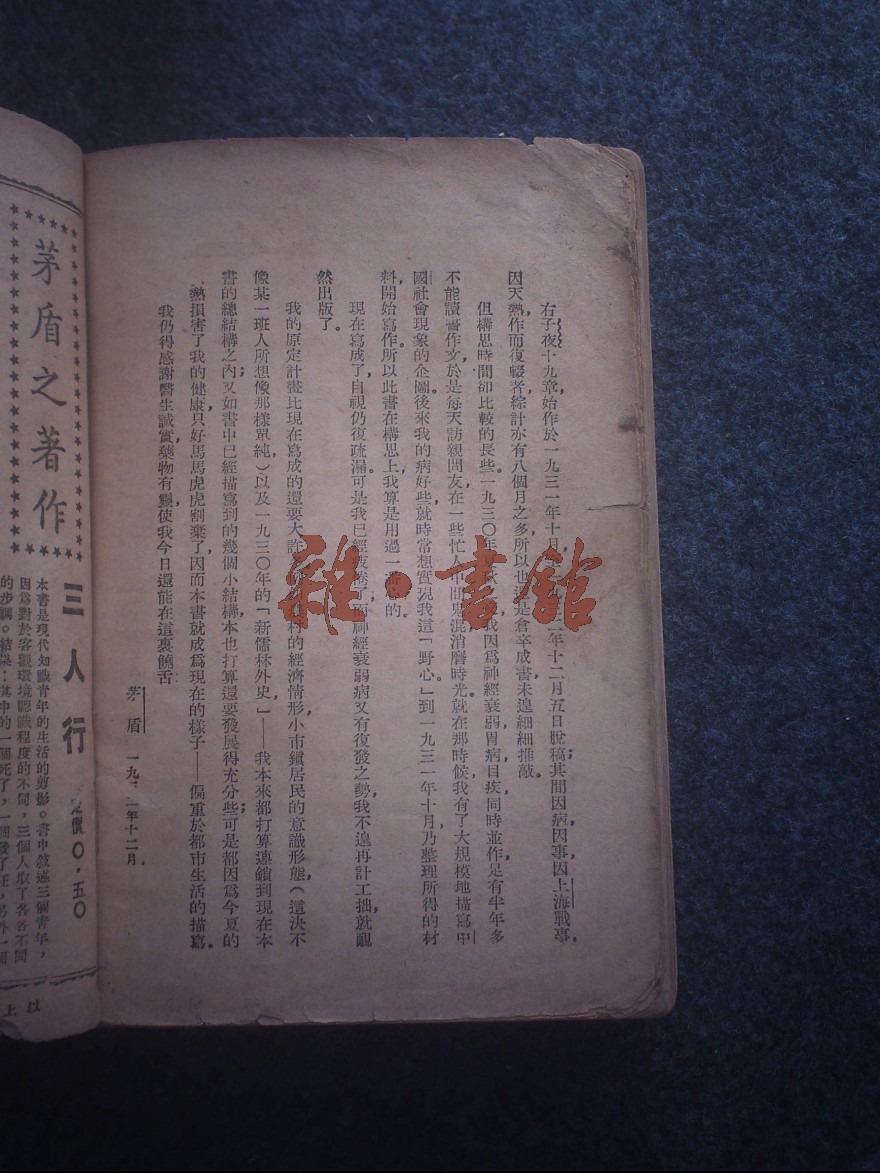 右子夜十九章，始作於一九三一年十月，二年十二月五日脫稿；其間因病，因事，因上海戰事，
因天熱，作而復輟者，綜計亦有八個月之多，所以也還是倉卒成書，未遑細細推敲。
但構思時間卻比較的長些。一九三〇年，我因爲神經衰弱，胃病，目疾，同時並作，足有半年多
不能讀書作文，於是每天訪親問友，在一些忙人中間鬼混，消磨時光。就在那時候，我有了大規模地描寫中
國社會現象的企圖。後來我的病好些，就時常想實現我這「野心。」到一九三一年十月，乃整理所得的材
料，開始寫作。所以此書在構思上，我算是用過一番的。
現在寫成了，自視仍復疏漏。可是我已經疲倦了，而神經衰弱病又有復發之勢，我不遑再計工拙，就靦
然出版了。
我的原定計畫比現在寫成的還要大許村的經濟情形，小市鎮居民的意識形態（這決不
像某一班人所想像那樣單純，）以及一九三〇年的「新儒林外史」——我本來都打算連鎖到現在本
書的總結構之內；又如書中已經描寫到的幾個小結構，本也打算還要發展得充分些；可是都因爲今夏的
熱損害了我的健康，只好馬馬虎虎割棄了，因而本書就成爲現在的樣子——偏重於都市生活的描寫。
我仍得感謝醫生誠實，藥物有靈，使我今日還能在這裏饒舌
茅盾 一九三二年十二月，
茅盾之著作
三人行 定價〇・五〇
本書是現代知識青年的生活的剪影。書中敘述三個青年，
因爲對於客觀環境認識程度的不同，三個人取了各各不同
的步調。結果：其中的一個死了，一個發了狂，另外一個
以上
雜・書館